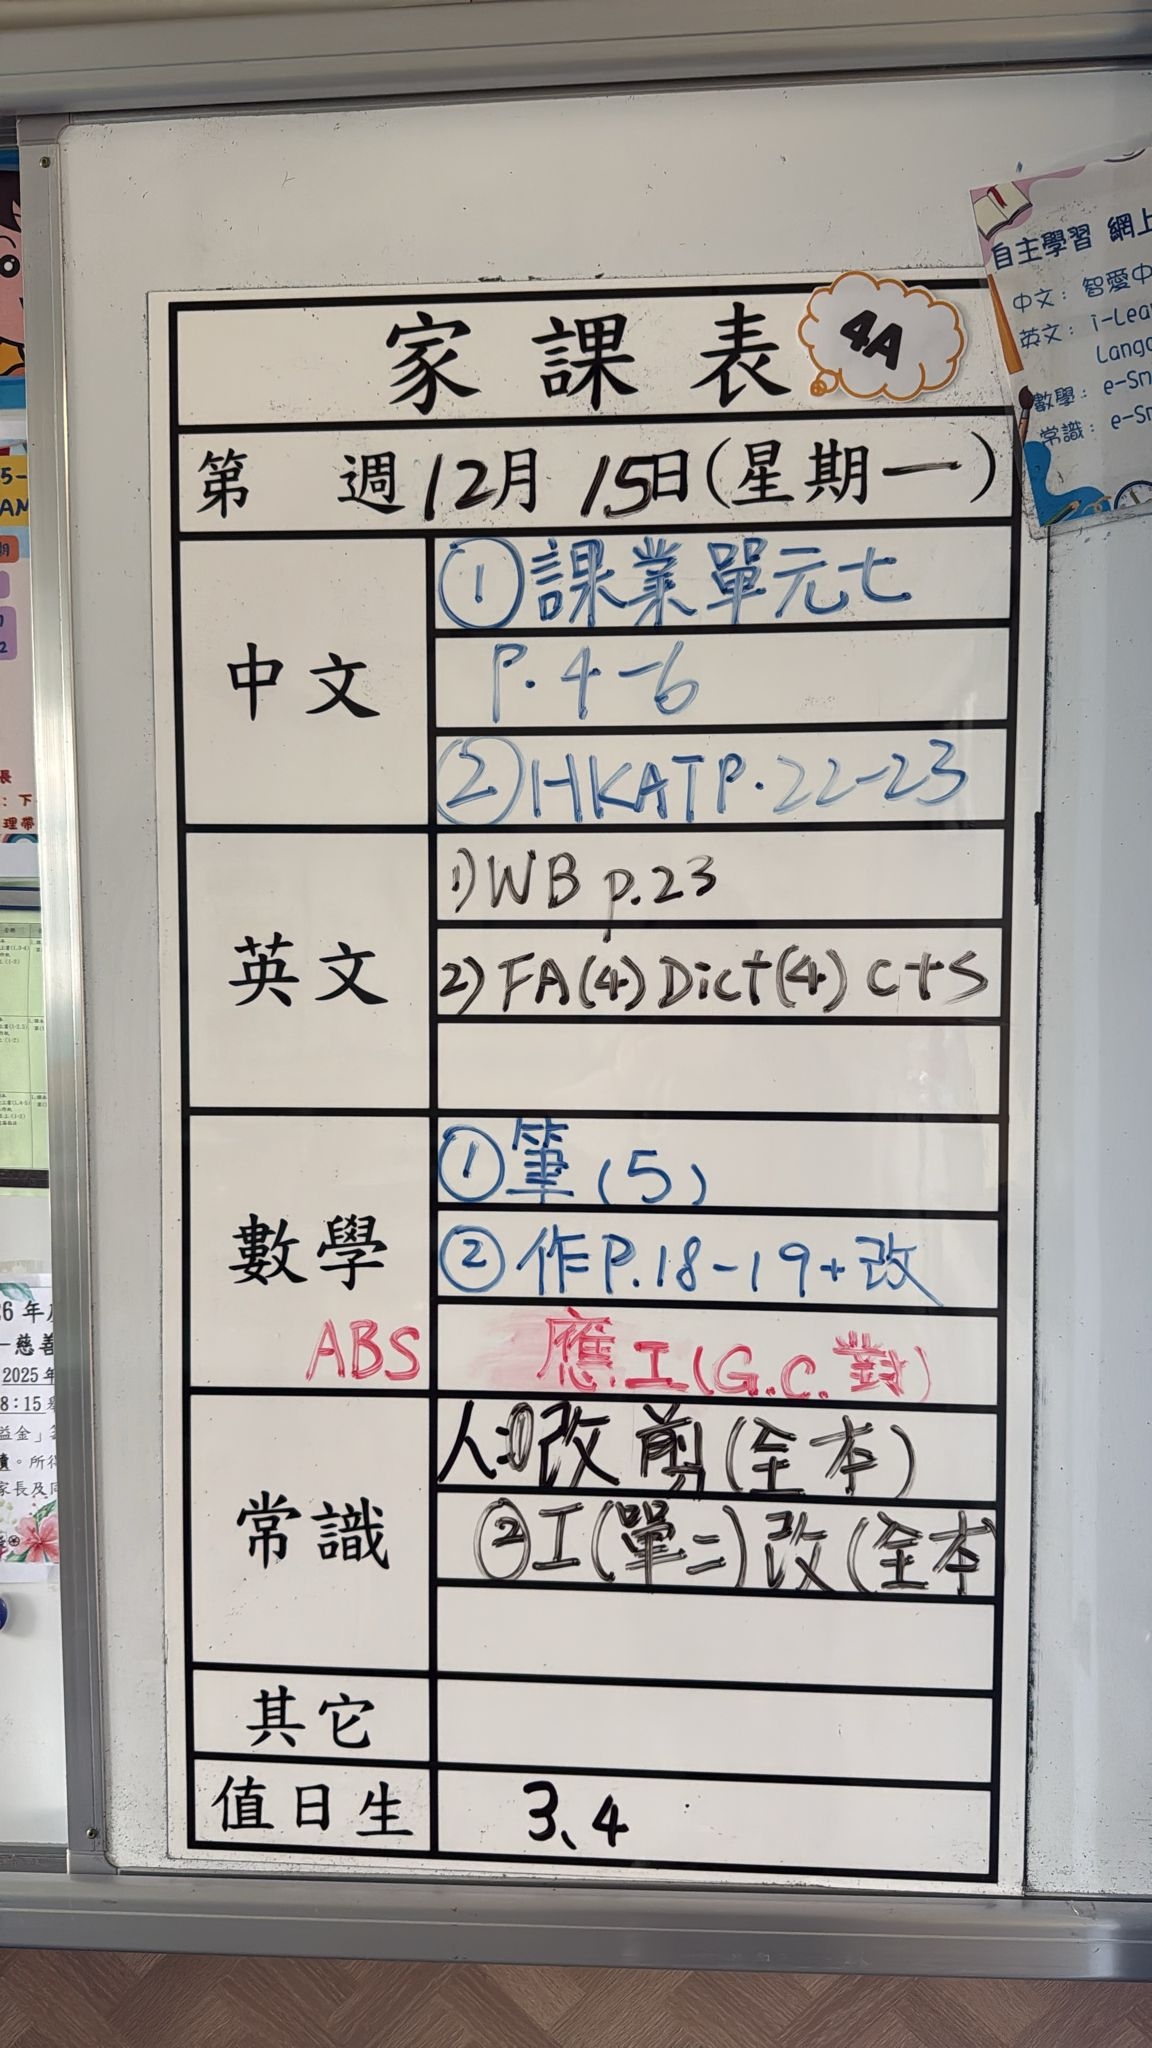 家課表
4A
第 週12月 15日(星期一)
中文
①課業單元七
P.4-6
②HKATP.22-23
英文
1)WB p.23
2)FA(4)Dict(4)C+S
數學
①筆(5)
②作P.18-19+改
ABS 應工(G.C.對)
常識
人:①改剪(全本)
②工(單二)改(全本
其它
值日生
3、4
自主學習 網上
中文: 智愛中
英文: i-Lear
Langu
數學: e-Sm
常識: e-Sm
26年
慈善
2025年
8:15